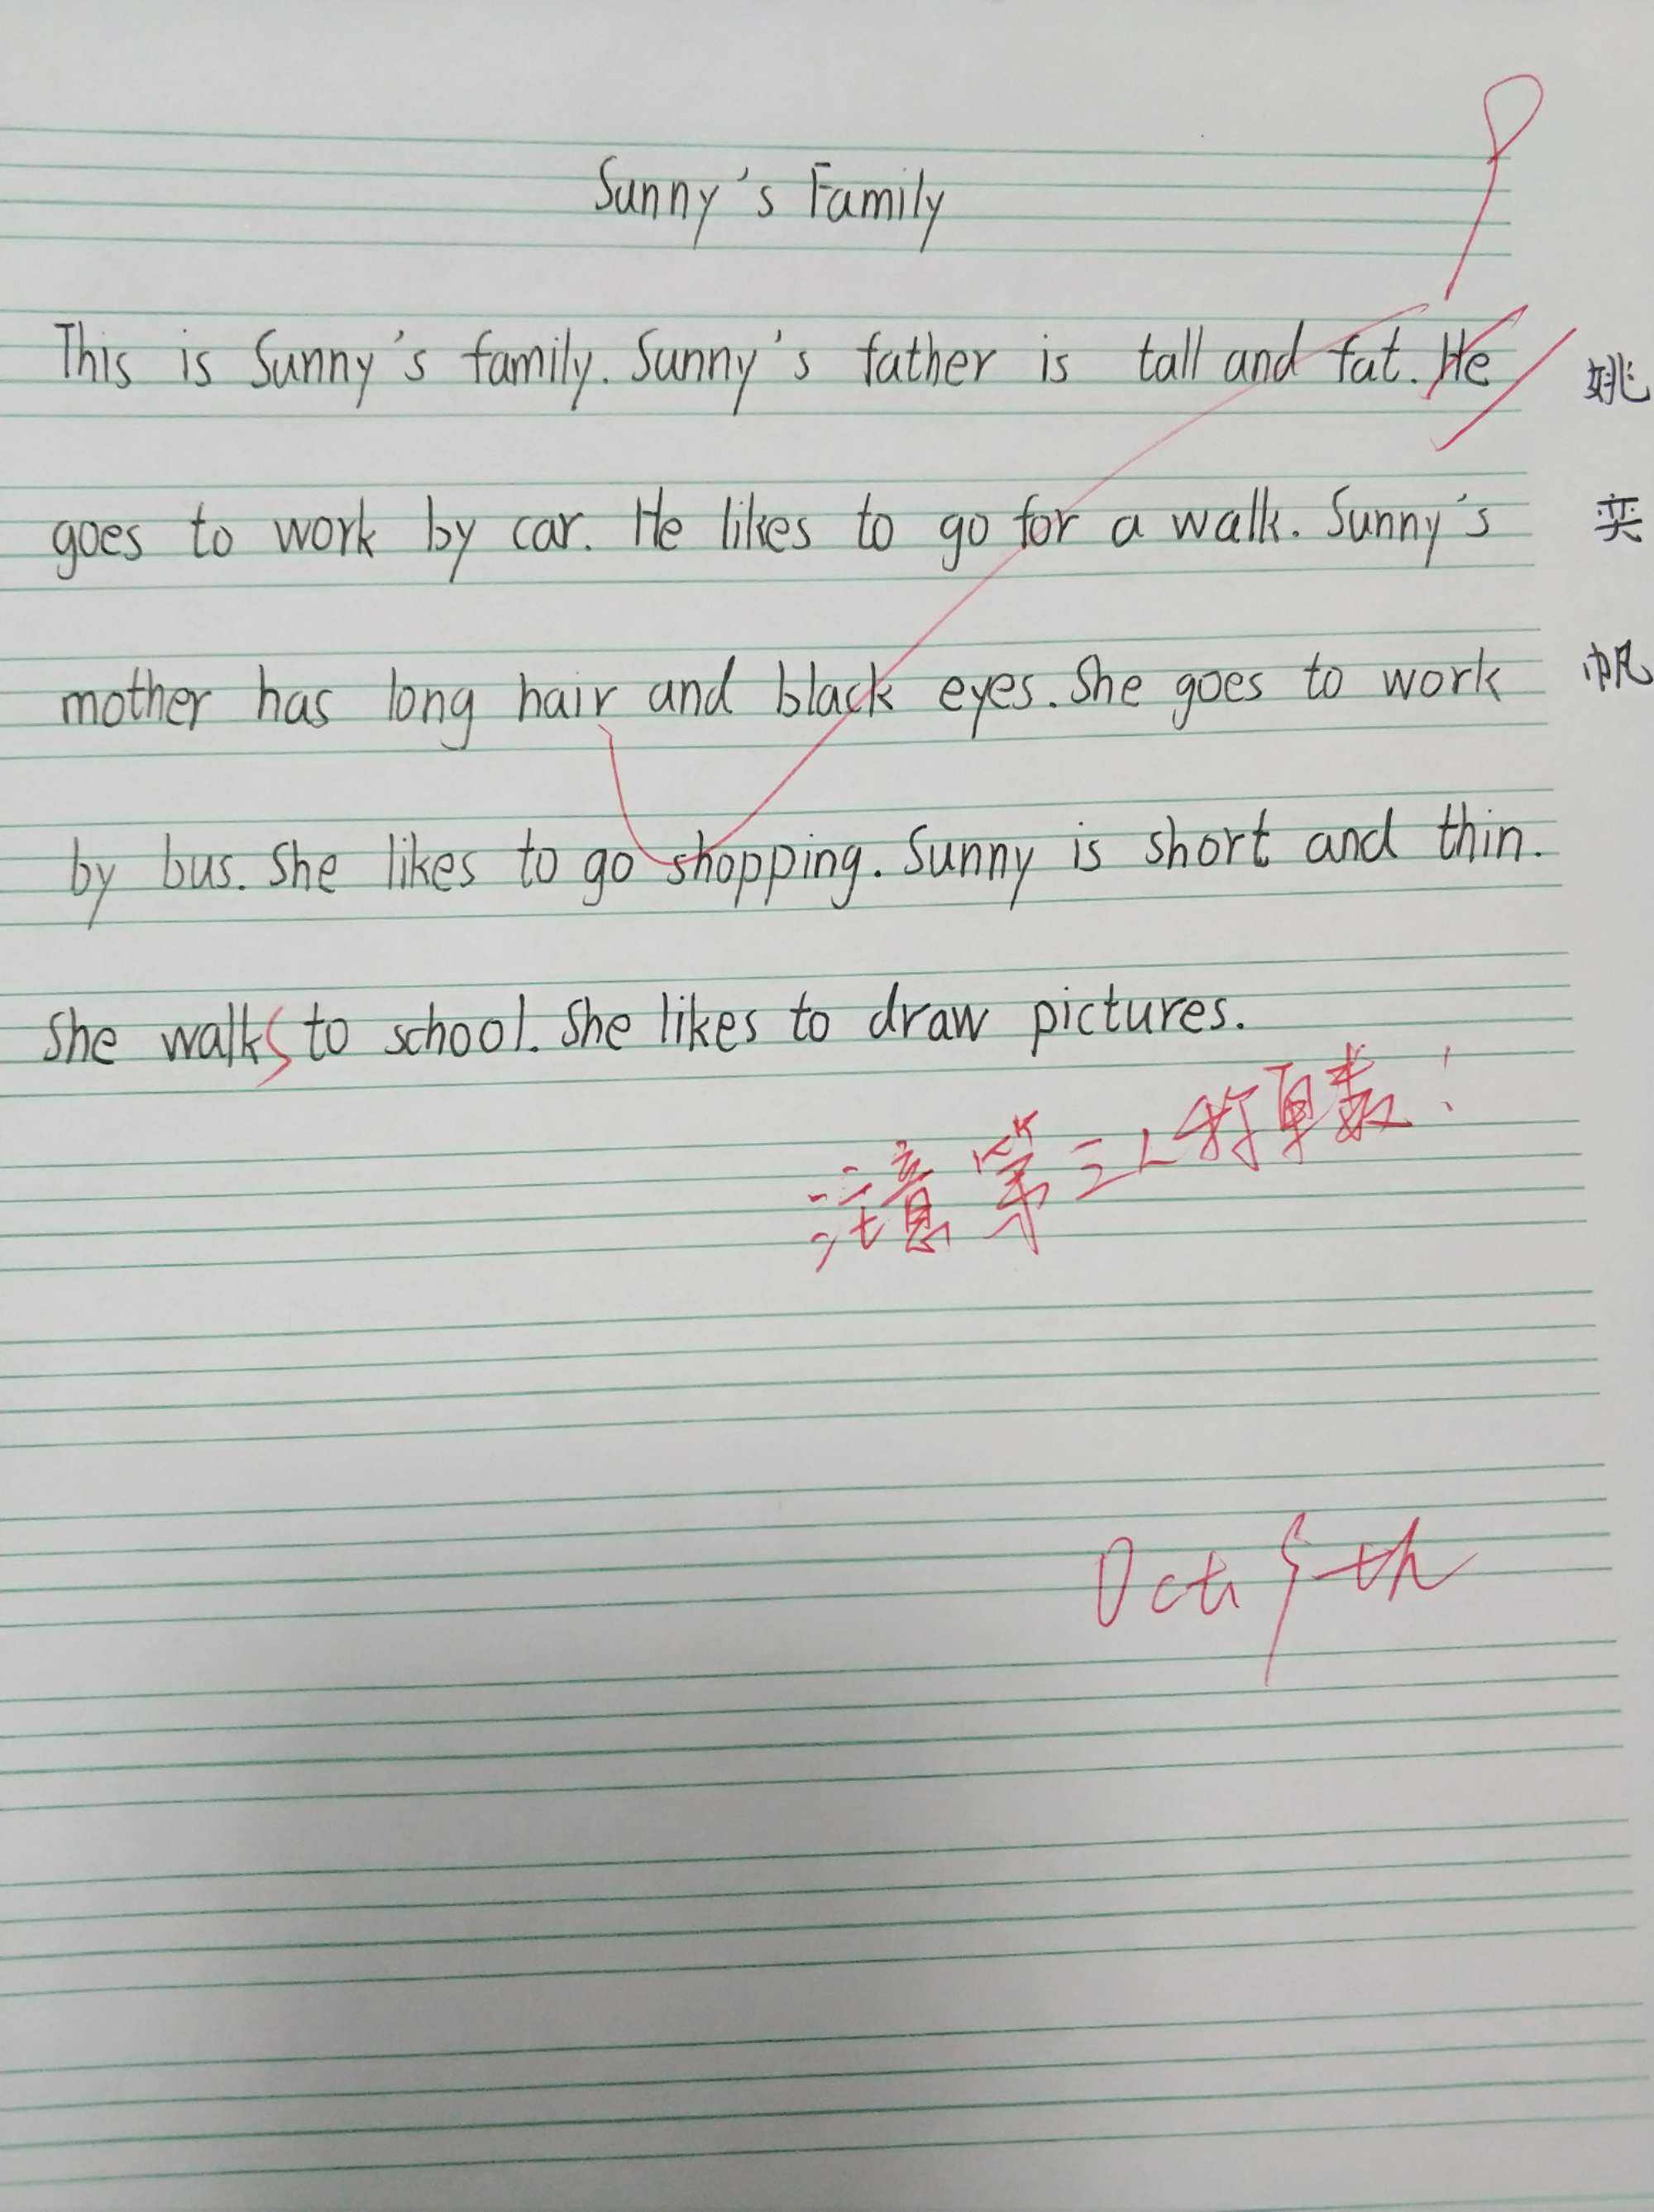 Sunny's Family
This is Sunny's family. Sunny's father is tall and fat. He
goes to work by car. He likes to go for a walk. Sunny's
mother has long hair and black eyes. She goes to work
by bus. She likes to go shopping. Sunny is short and thin.
She walks to school. She likes to draw pictures.
姚
奕
帆
注意第三人称单数!
Oct